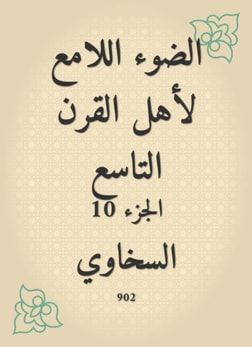 الضوء اللامع
لأهل القرن
التاسع
الجزء 10
السخاوي
902